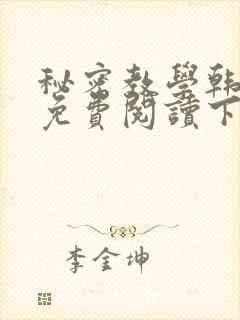 秘密教學韩
免費閱讀下
李金坤